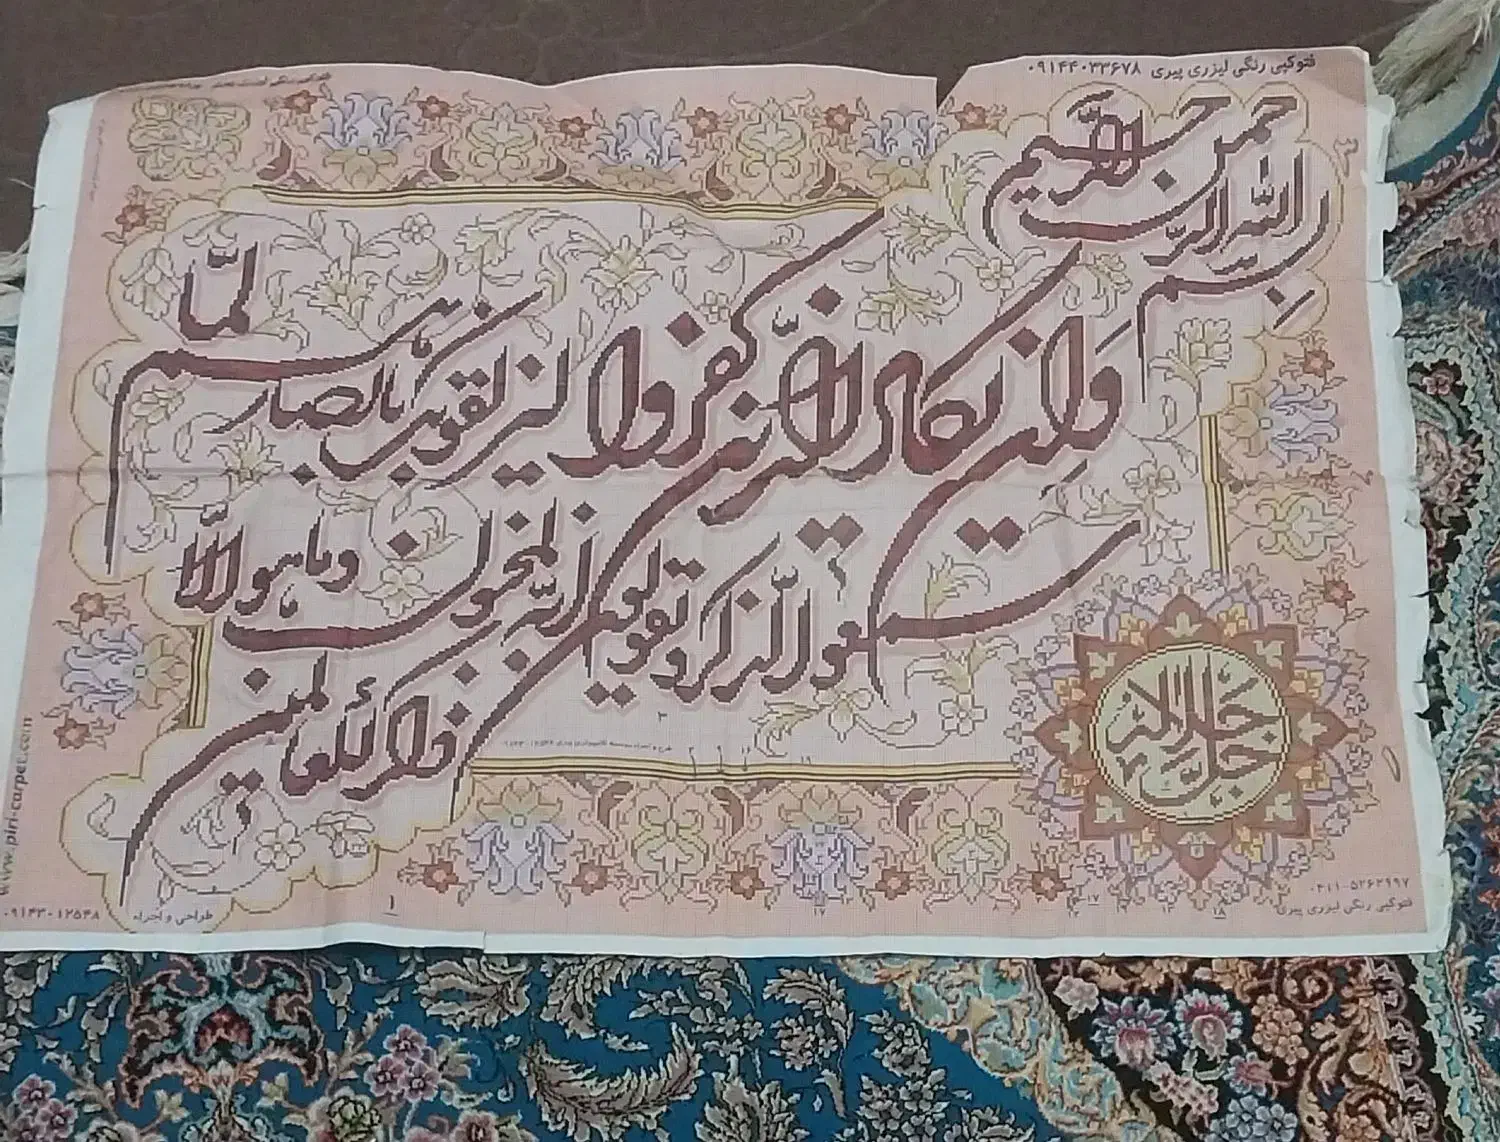 فتوکپی رنگی لیزری پیری ۰۹۱۴۴۰۳۳۶۷۸
بسم الله الرحمن الرحیم
وان یکاد الذین کفروا لیزلقونک بابصارهم لما
سمعوا الذکر و یقولون انه لمجنون وما هو الا
ذکر للعالمین
جل جلاله الله
www.piri-carpet.com
۰۹۱۴۳۰۱۲۵۴۸
طراحی و اجراء
۰۴۱۱-۵۲۶۲۹۹۷
فتوکپی رنگی لیزری پیری